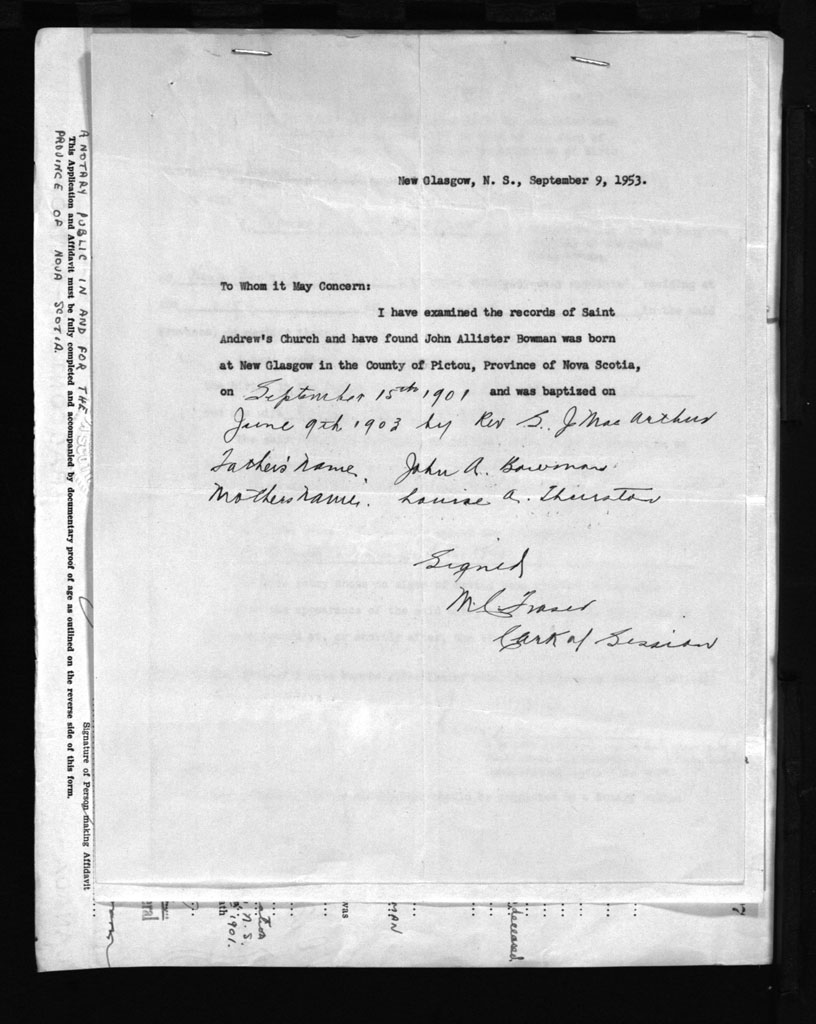 New Glasgow, N. S., September 9, 1953.
To Whom it May Concern:
I have examined the records of Saint
Andrew's Church and have found John Allister Bowman was born
at New Glasgow in the County of Pictou, Province of Nova Scotia,
on September 15th 1901 and was baptized on
June 9th 1903 by Rev S. J MacArthur
Father's Name. John A. Bowman
Mothers Name. Louise A. Thurston
Signed
M. C. Fraser
Clerk of Session
A NOTARY PUBLIC IN AND FOR THE
PROVINCE OF NOVA SCOTIA.
This Application and Affidavit must be fully completed and accompanied by documentary proof of age as outlined on the reverse side of this form.
Signature of Person making Affidavit
N. S.
1901.
was
MAN
deceased